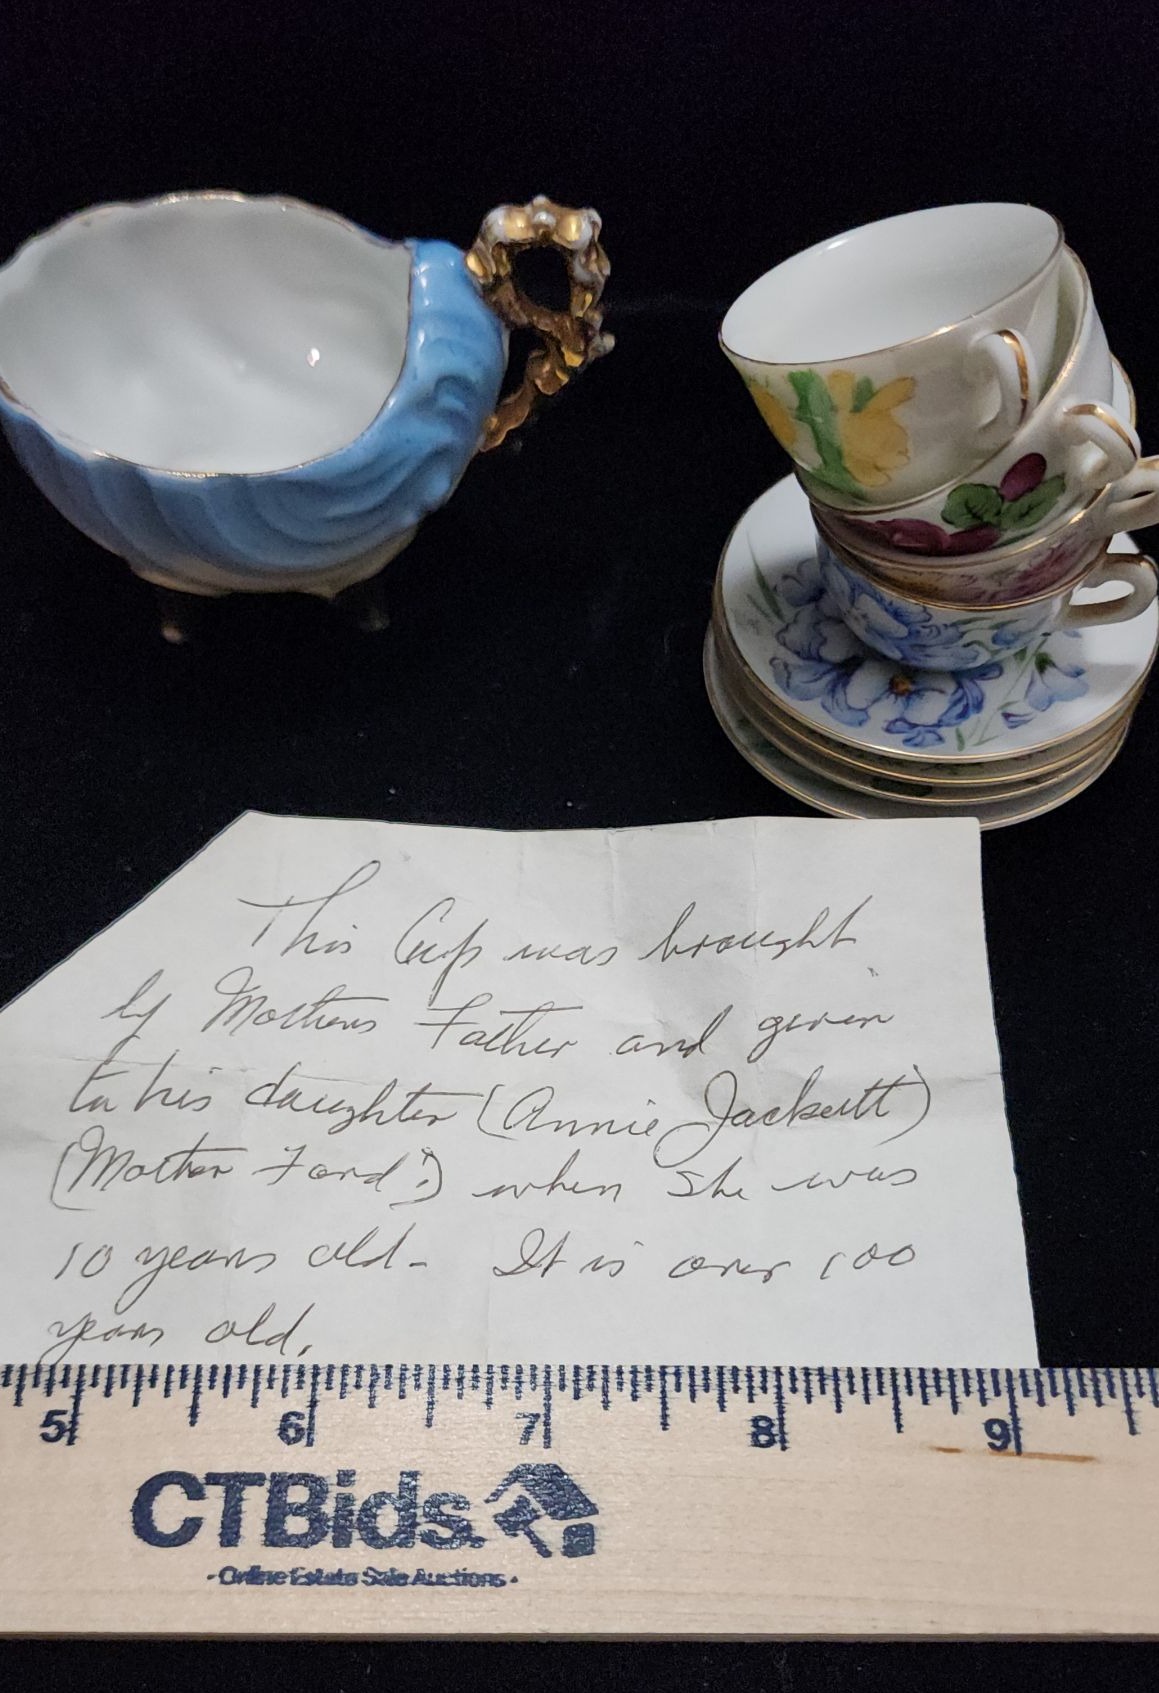 This Cup was brought
by Mothers Father and given
to his daughter (Annie Jackett)
(Mother Ford?) when she was
10 years old - It is over 100
years old.
5 6 7 8 9
CTBids.
- Online Estate Sale Auctions -